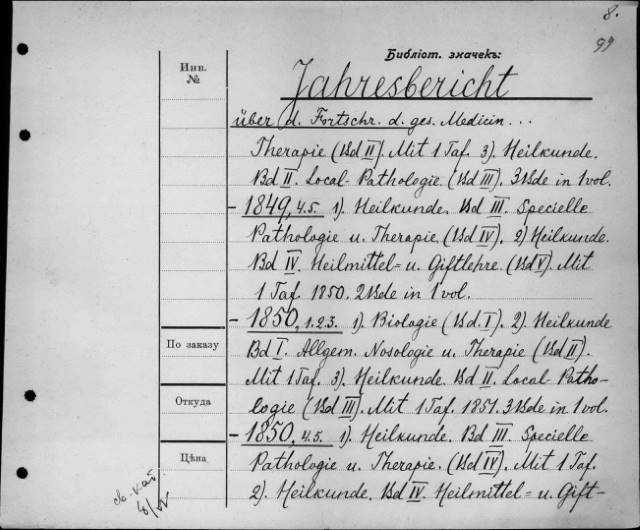 8.
99
Библіот. значекъ:
Инв.
№
Jahresbericht
über d. Fortschr. d. ges. Medicin...
Therapie (Bd II). Mit 1 Taf. 3). Heilkunde.
Bd II. Local-Pathologie (Bd III). 3 Bde in 1 vol.
- 1849, 4.5. 1). Heilkunde. Bd III. Specielle
Pathologie u. Therapie. (Bd IV). 2) Heilkunde.
Bd IV. Heilmittel= u. Giftlehre. (Bd V). Mit
1 Taf. 1850. 2 Bde in 1 vol.
- 1850, 1.2.3. 1). Biologie (Bd. I). 2). Heilkunde
По заказу
Bd I. Allgem. Nosologie u. Therapie (Bd II).
Mit 1 Taf. 3). Heilkunde. Bd II. Local-Patho-
Откуда
logie (Bd III). Mit 1 Taf. 1851. 3 Bde in 1 vol.
- 1850, 4.5. 1). Heilkunde. Bd III. Specielle
Цѣна
Pathologie u. Therapie. (Bd IV). Mit 1 Taf.
2). Heilkunde. Bd IV. Heilmittel= u. Gift-